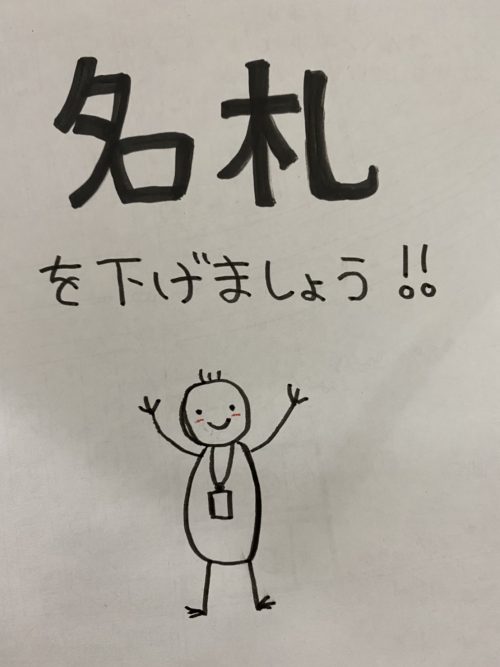 名札
を下げましょう!!